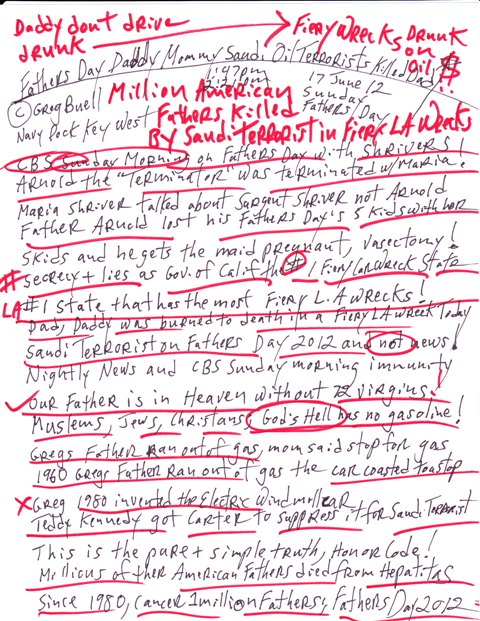 Daddy dont drive drunk
Fiery Wrecks Drunk on Oil $
Fathers Day Daddy Mommy Saudi Oil Terrorists Killed Dad
1:47pm
17 June 12
Sunday
Fathers Day
© Greg Buell
Navy Dock Key West
Million American
Fathers Killed
By Saudi Terrorist in Fiery LA Wreaks
CBS Sunday Morning on Fathers Day with Shrivers!
Arnold the "Terminator" was terminated w/Maria!
Maria Shriver talked about Surgent Shriver not Arnold
Father Arnold lost his Fathers Day's 5 kids with her
5 kids and he gets the maid pregnant, vasectomy!
# secrecy + lies as Gov. of Calif the #1 Fiery Car wreck State
LA #1 State that has the most Fiery L.A wrecks!
Dad, Daddy was burned to death in a Fiery LA wreck Today
Saudi Terrorist on Fathers Day 2012 and not news!
Nightly News and CBS Sunday morning immunity
✓ Our Father is in Heaven without 72 virgins!
Muslems, Jews, Christans, God's Hell has no gasoline!
Gregs Father ran out of gas, mom said stop for gas
1960 Gregs Father Ran out of gas the car coasted to a stop
X Greg 1980 invented the Electric Windmill car
Teddy Kennedy got Carter to suppress it for Saudi Terrorist
This is the pure + simple truth, Honor Code!
Millions of ther American Fathers died from Hepatitas
Since 1980, Cancer 1 million Fathers, Fathers Day 2012